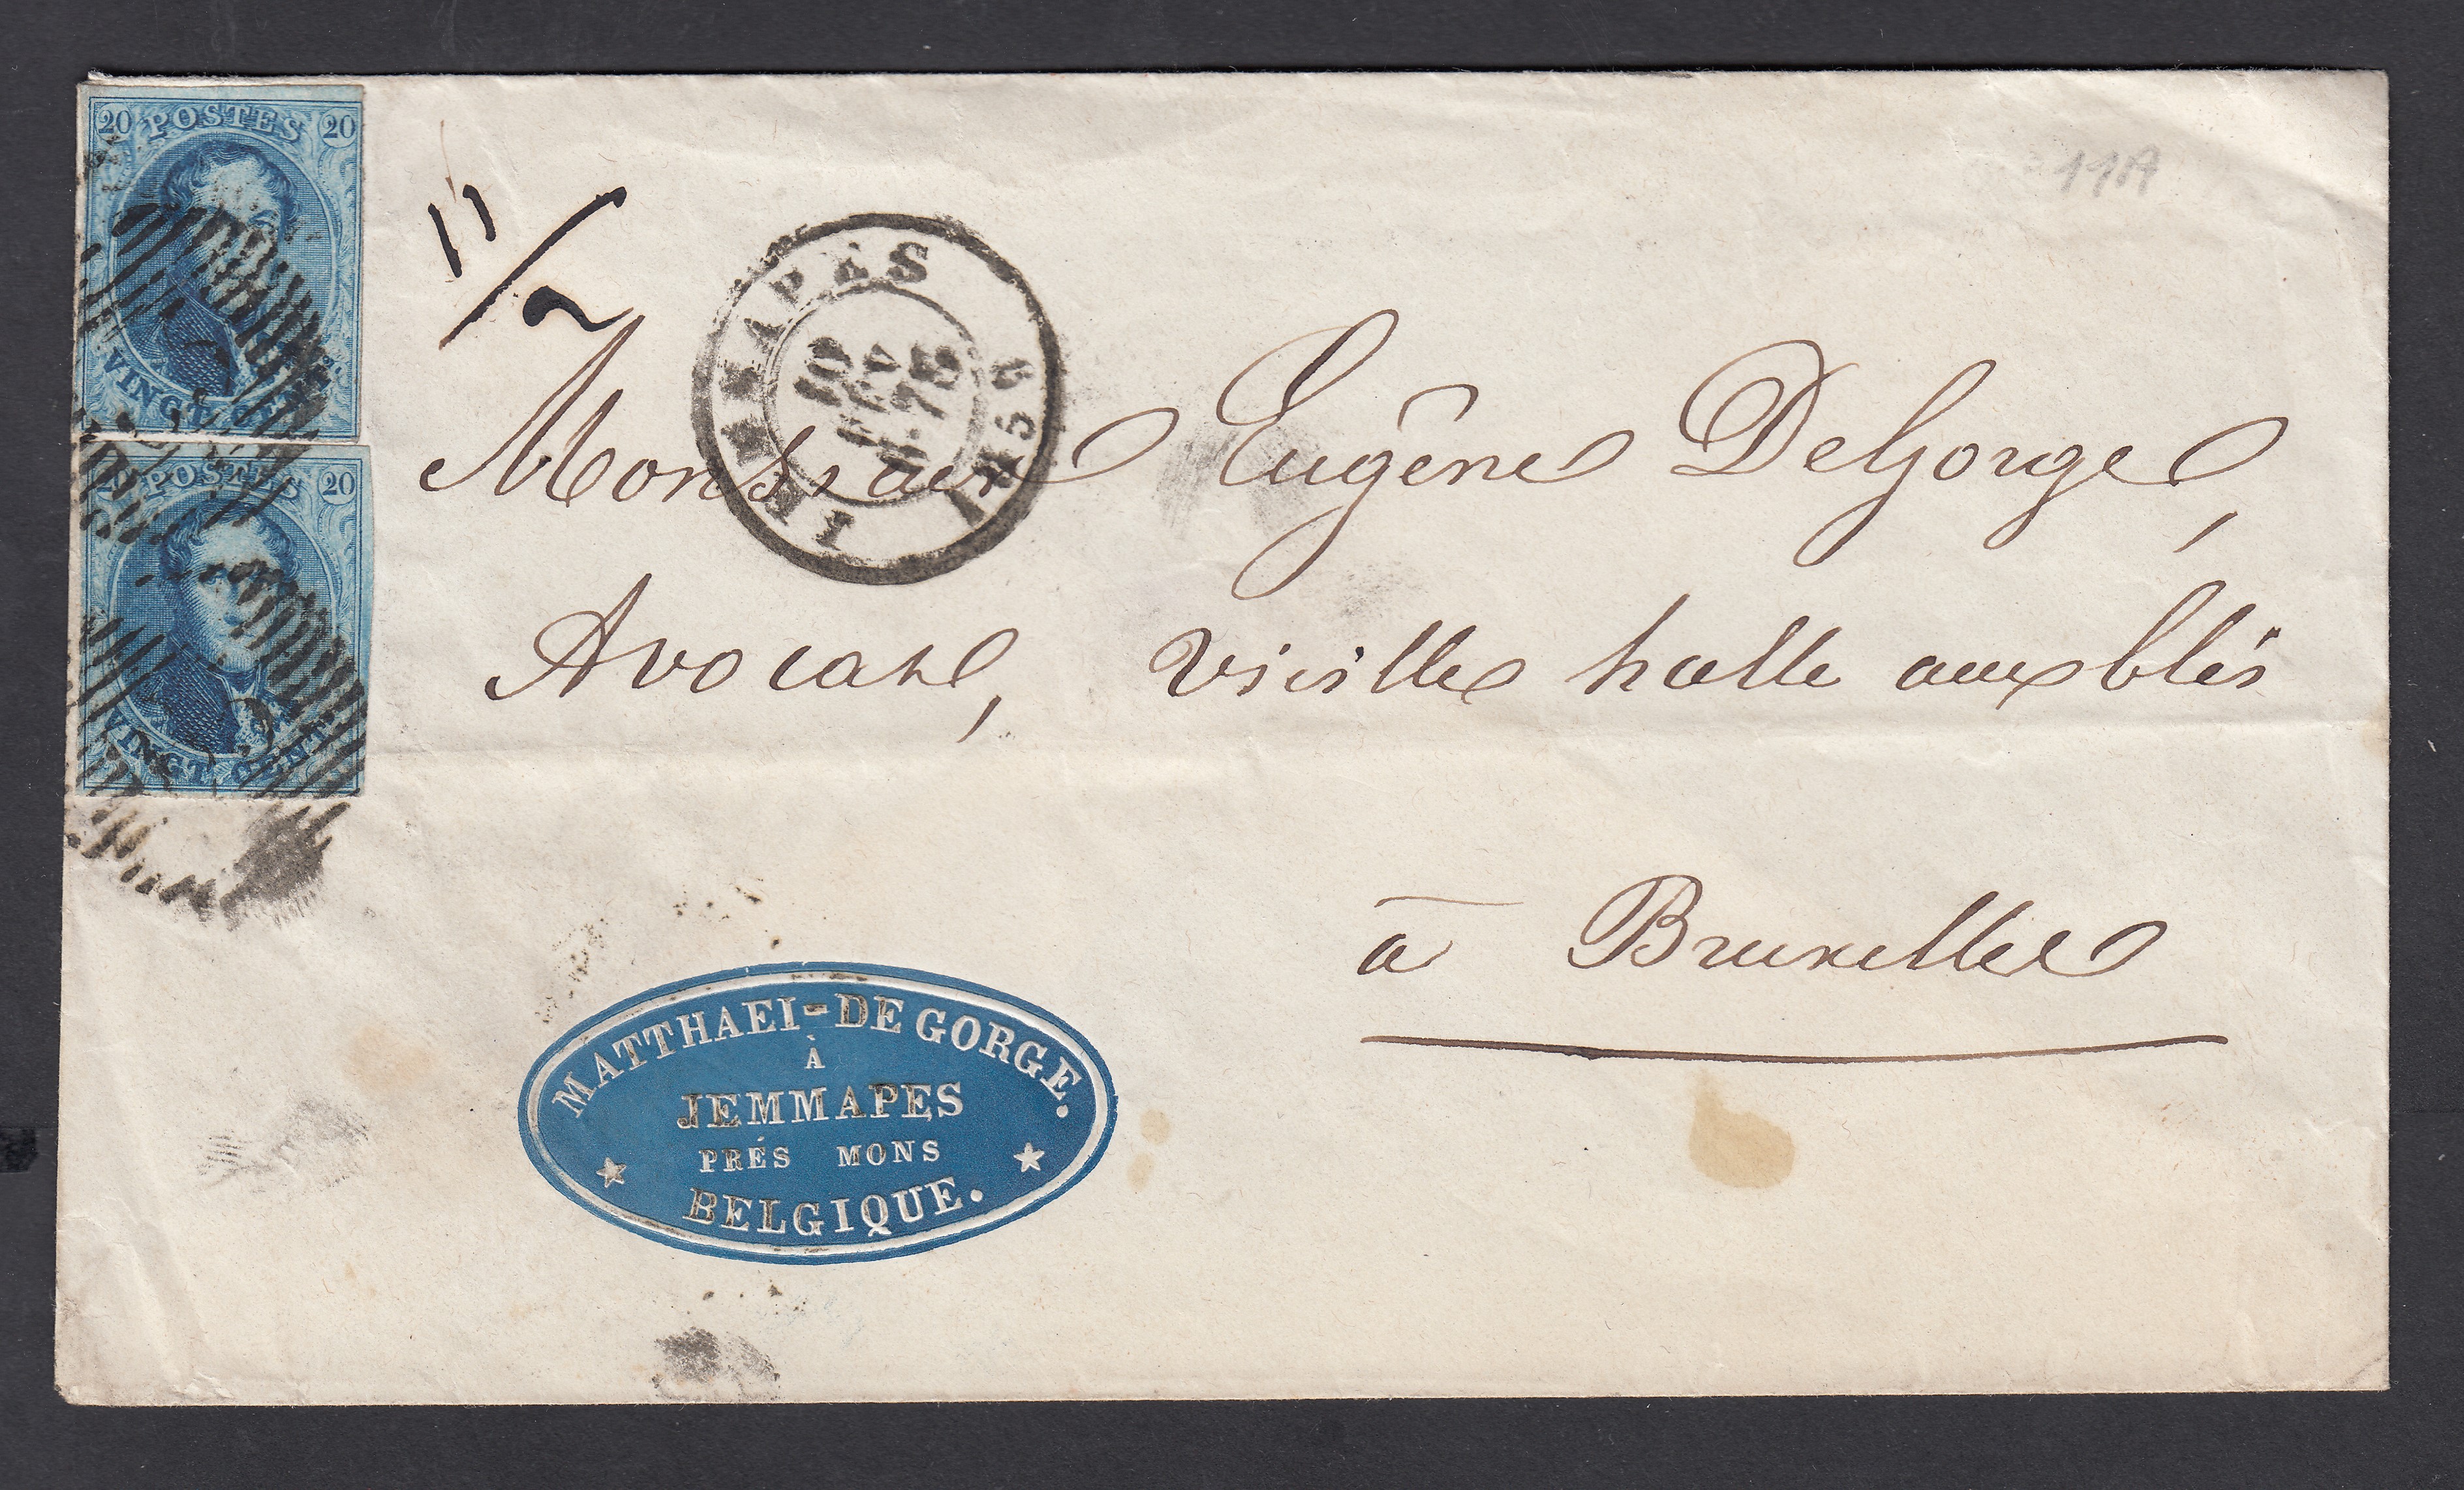 20 POSTES 20
VINGT CENT
POSTES 20
VINGT CENT
11/2
11A
JEMMAPES
10
Monsieur Eugène DeGorge,
Avocat, vieille halle aux blés
à Bruxelles
MATTHAEI-DE GORGE.
À
JEMMAPES
PRÉS MONS
BELGIQUE.